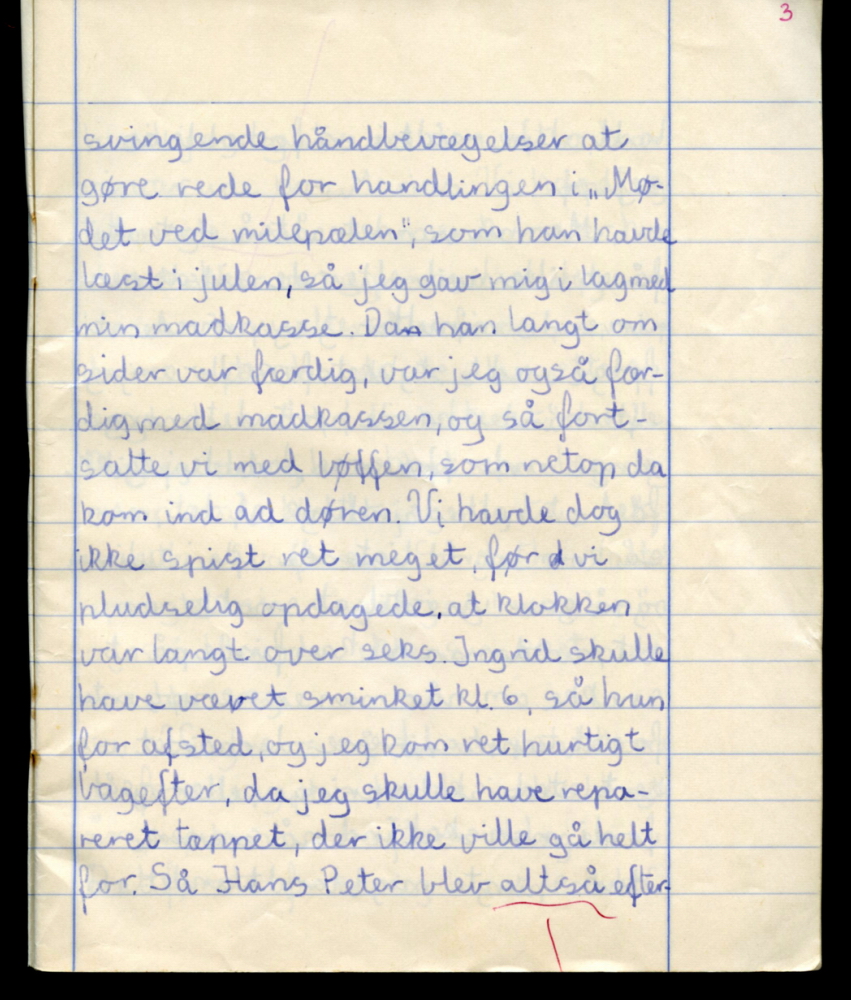 3
svingende håndbevægelser at
gøre rede for handlingen i „Mø-
det ved milepælen“, som han havde
læst i julen, så jeg gav mig i lag med
min madkasse. Da han langt om
sider var færdig, var jeg også fær-
dig med madkassen, og så fort-
satte vi med bøffen, som netop da
kom ind ad døren. Vi havde dog
ikke spist ret meget, før vi
pludselig opdagede, at klokken
var langt over seks. Ingrid skulle
have været sminket kl. 6, så hun
for afsted, og jeg kom ret hurtigt
bagefter, da jeg skulle have repa-
reret tæppet, der ikke ville gå helt
for. Så Hans Peter blev altså efter-